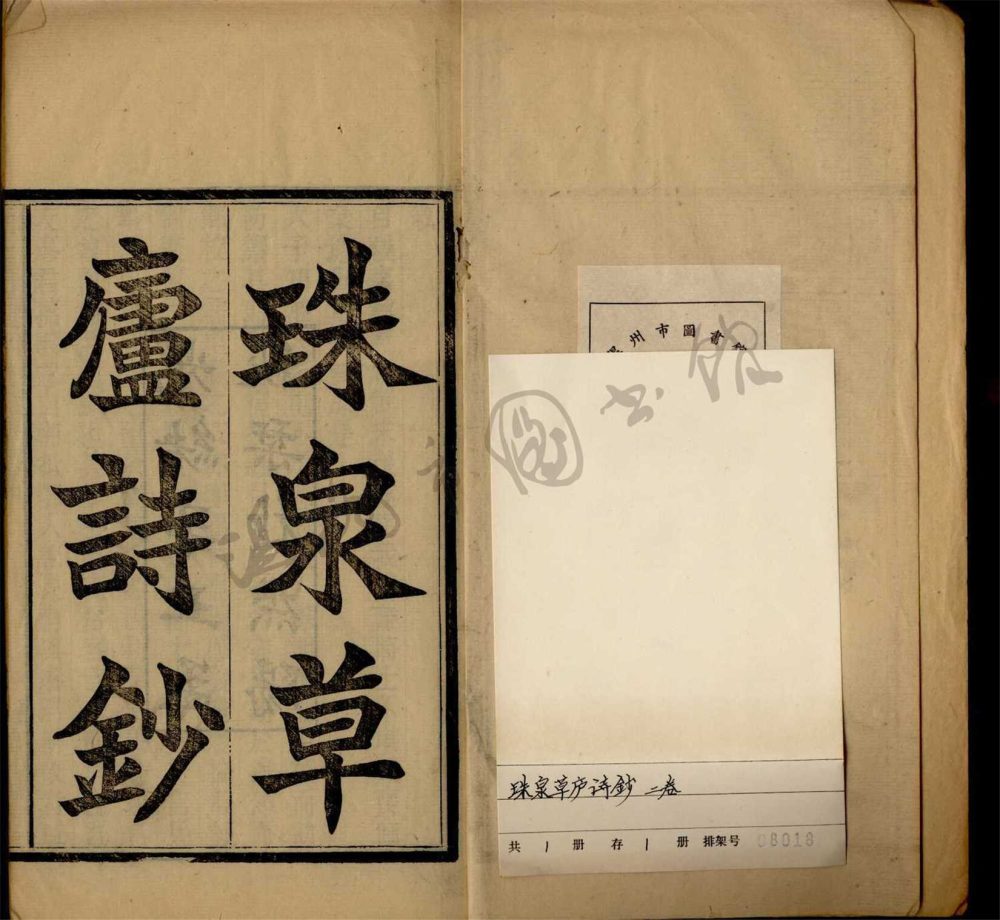 珠泉草
廬詩鈔
州市圖書館
圖书館
珠泉草庐诗鈔 二卷
共 1 册 存 1 册 排架号 08018